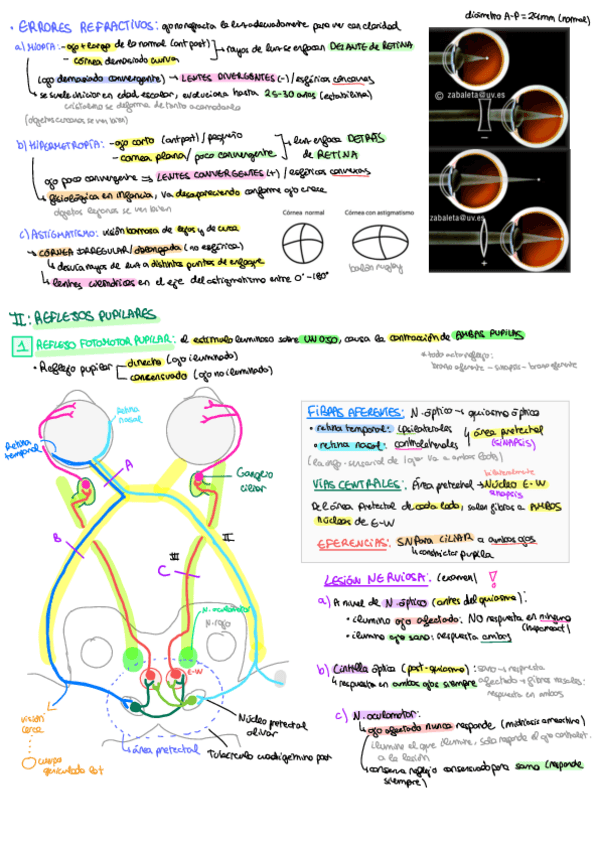 • ERRORES REFRACTIVOS: ojo no refracta la luz adecuadamente para ver con claridad
diámetro A-P = 24mm (normal)
a) MIOPÍA: - ojo + largo de lo normal (ant post)
- córnea demasiado curva
→ rayos de luz se enfocan DELANTE DE RETINA
(ojo demasiado convergente) → LENTES DIVERGENTES (-) / esféricas cóncavas
↳ se suele iniciar en edad escolar, evoluciona hasta 25-30 años (estabiliza)
cristalino se deforma de tanto acomodarlo
(objetos cercanos se ven bien)
b) HIPERMETROPÍA: - ojo corto (ant post) / pequeño
- cornea plana / poco convergente
→ luz enfoca DETRÁS
de RETINA
ojo poco convergente ⇒ LENTES CONVERGENTES (+) / esféricas convexas
↳ fisiológica en infancia, va desapareciendo conforme ojo crece
objetos lejanos se ven bien
c) ASTIGMATISMO: visión borrosa de lejos y de cerca
→ CÓRNEA IRREGULAR / oblongada (no esférica)
↳ desvía rayos de luz a distintos puntos de enfoque
↳ lentes cilíndricas en el eje del astigmatismo entre 0°-180°
Córnea normal
Córnea con astigmatismo
balón rugby
© zabaleta@uv.es
zabaleta@uv.es
II: REFLEJOS PUPILARES
1 REFLEJO FOTOMOTOR PUPILAR: el estímulo luminoso sobre UN OJO, causa la contracción de AMBAS PUPILAS
• Reflejo pupilar
directo (ojo iluminado)
consensuado (ojo no iluminado)
* todo acto reflejo:
brazo aferente - sinapsis - brazo eferente
retina
nasal
Retina
temporal
Ganglio
ciliar
A
B
C
II
III
N. oculomotor
N. rojo
E-W
Núcleo pretectal
olivar
área pretectal
Tubérculo cuadrigémino post
visión
cerca
cuerpo
geniculado lat
FIBRAS AFERENTES: N. óptico → quiasma óptico
• retina temporal: ipsilaterales
• retina nasal: contralaterales
↳ área pretectal
(SINAPSIS)
VÍAS CENTRALES: Área pretectal → Núcleo E-W
bilateralmente
sinapsis
Del área Pretectal de cada lado, salen fibras a AMBOS
núcleos de E-W
EFERENCIAS: SN para CILIAR a ambos ojos
↳ constrictor pupila
LESIÓN NERVIOSA: (examen) !
a) A nivel de N. óptico (antes del quiasma):
• ilumino ojo afectado: NO respuesta en ninguno
• ilumino ojo sano: respuesta ambos
b) Cintilla óptica (post-quiasma): sano → respuesta
↳ respuesta en ambos ojos siempre
afectado → fibras nasales:
respuesta en ambos
c) N. oculomotor:
↳ ojo afectado nunca responde (midriasis arreactiva)
ilumine el que ilumine, solo responde el ojo contralat.
a la lesión
↳ conserva reflejo consensuado para sano (responde
siempre)